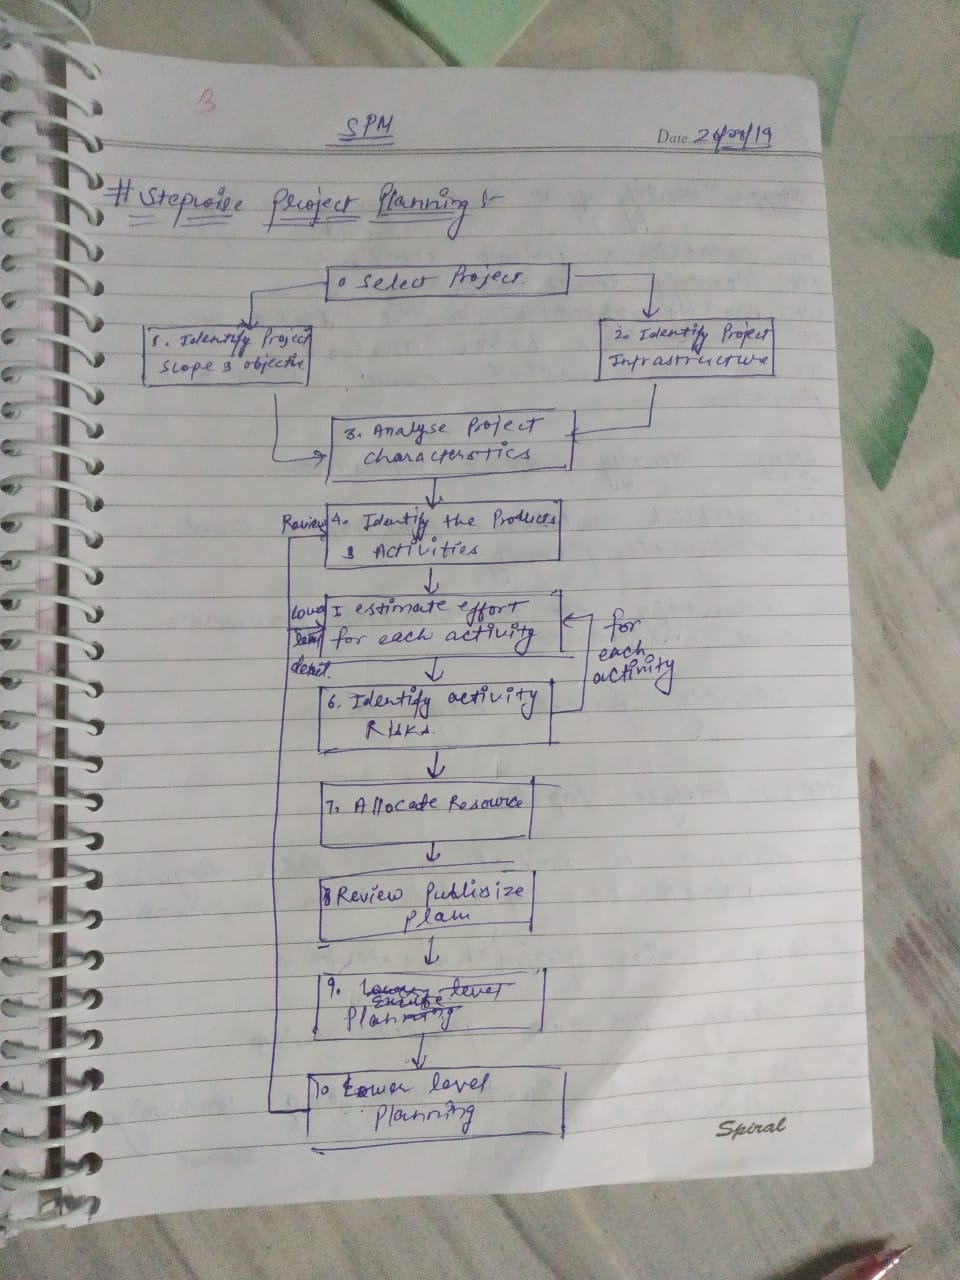 3
SPM
Date. 26/08/19
# Stepwise Project Planning :-
0 Select Project.
1. Identify Project
Scope & objective
2. Identify Project
Infrastructure
3. Analyse Project
characteristics
Review
4. Identify the Products
& Activities
Lower
level
detail.
5 estimate effort
for each activity
for
each
activity
6. Identify activity
Risks.
7. Allocate Resource
8 Review Publisize
plan
9. Lower level
Execute
Planning
10 Lower level
Planning
Spiral